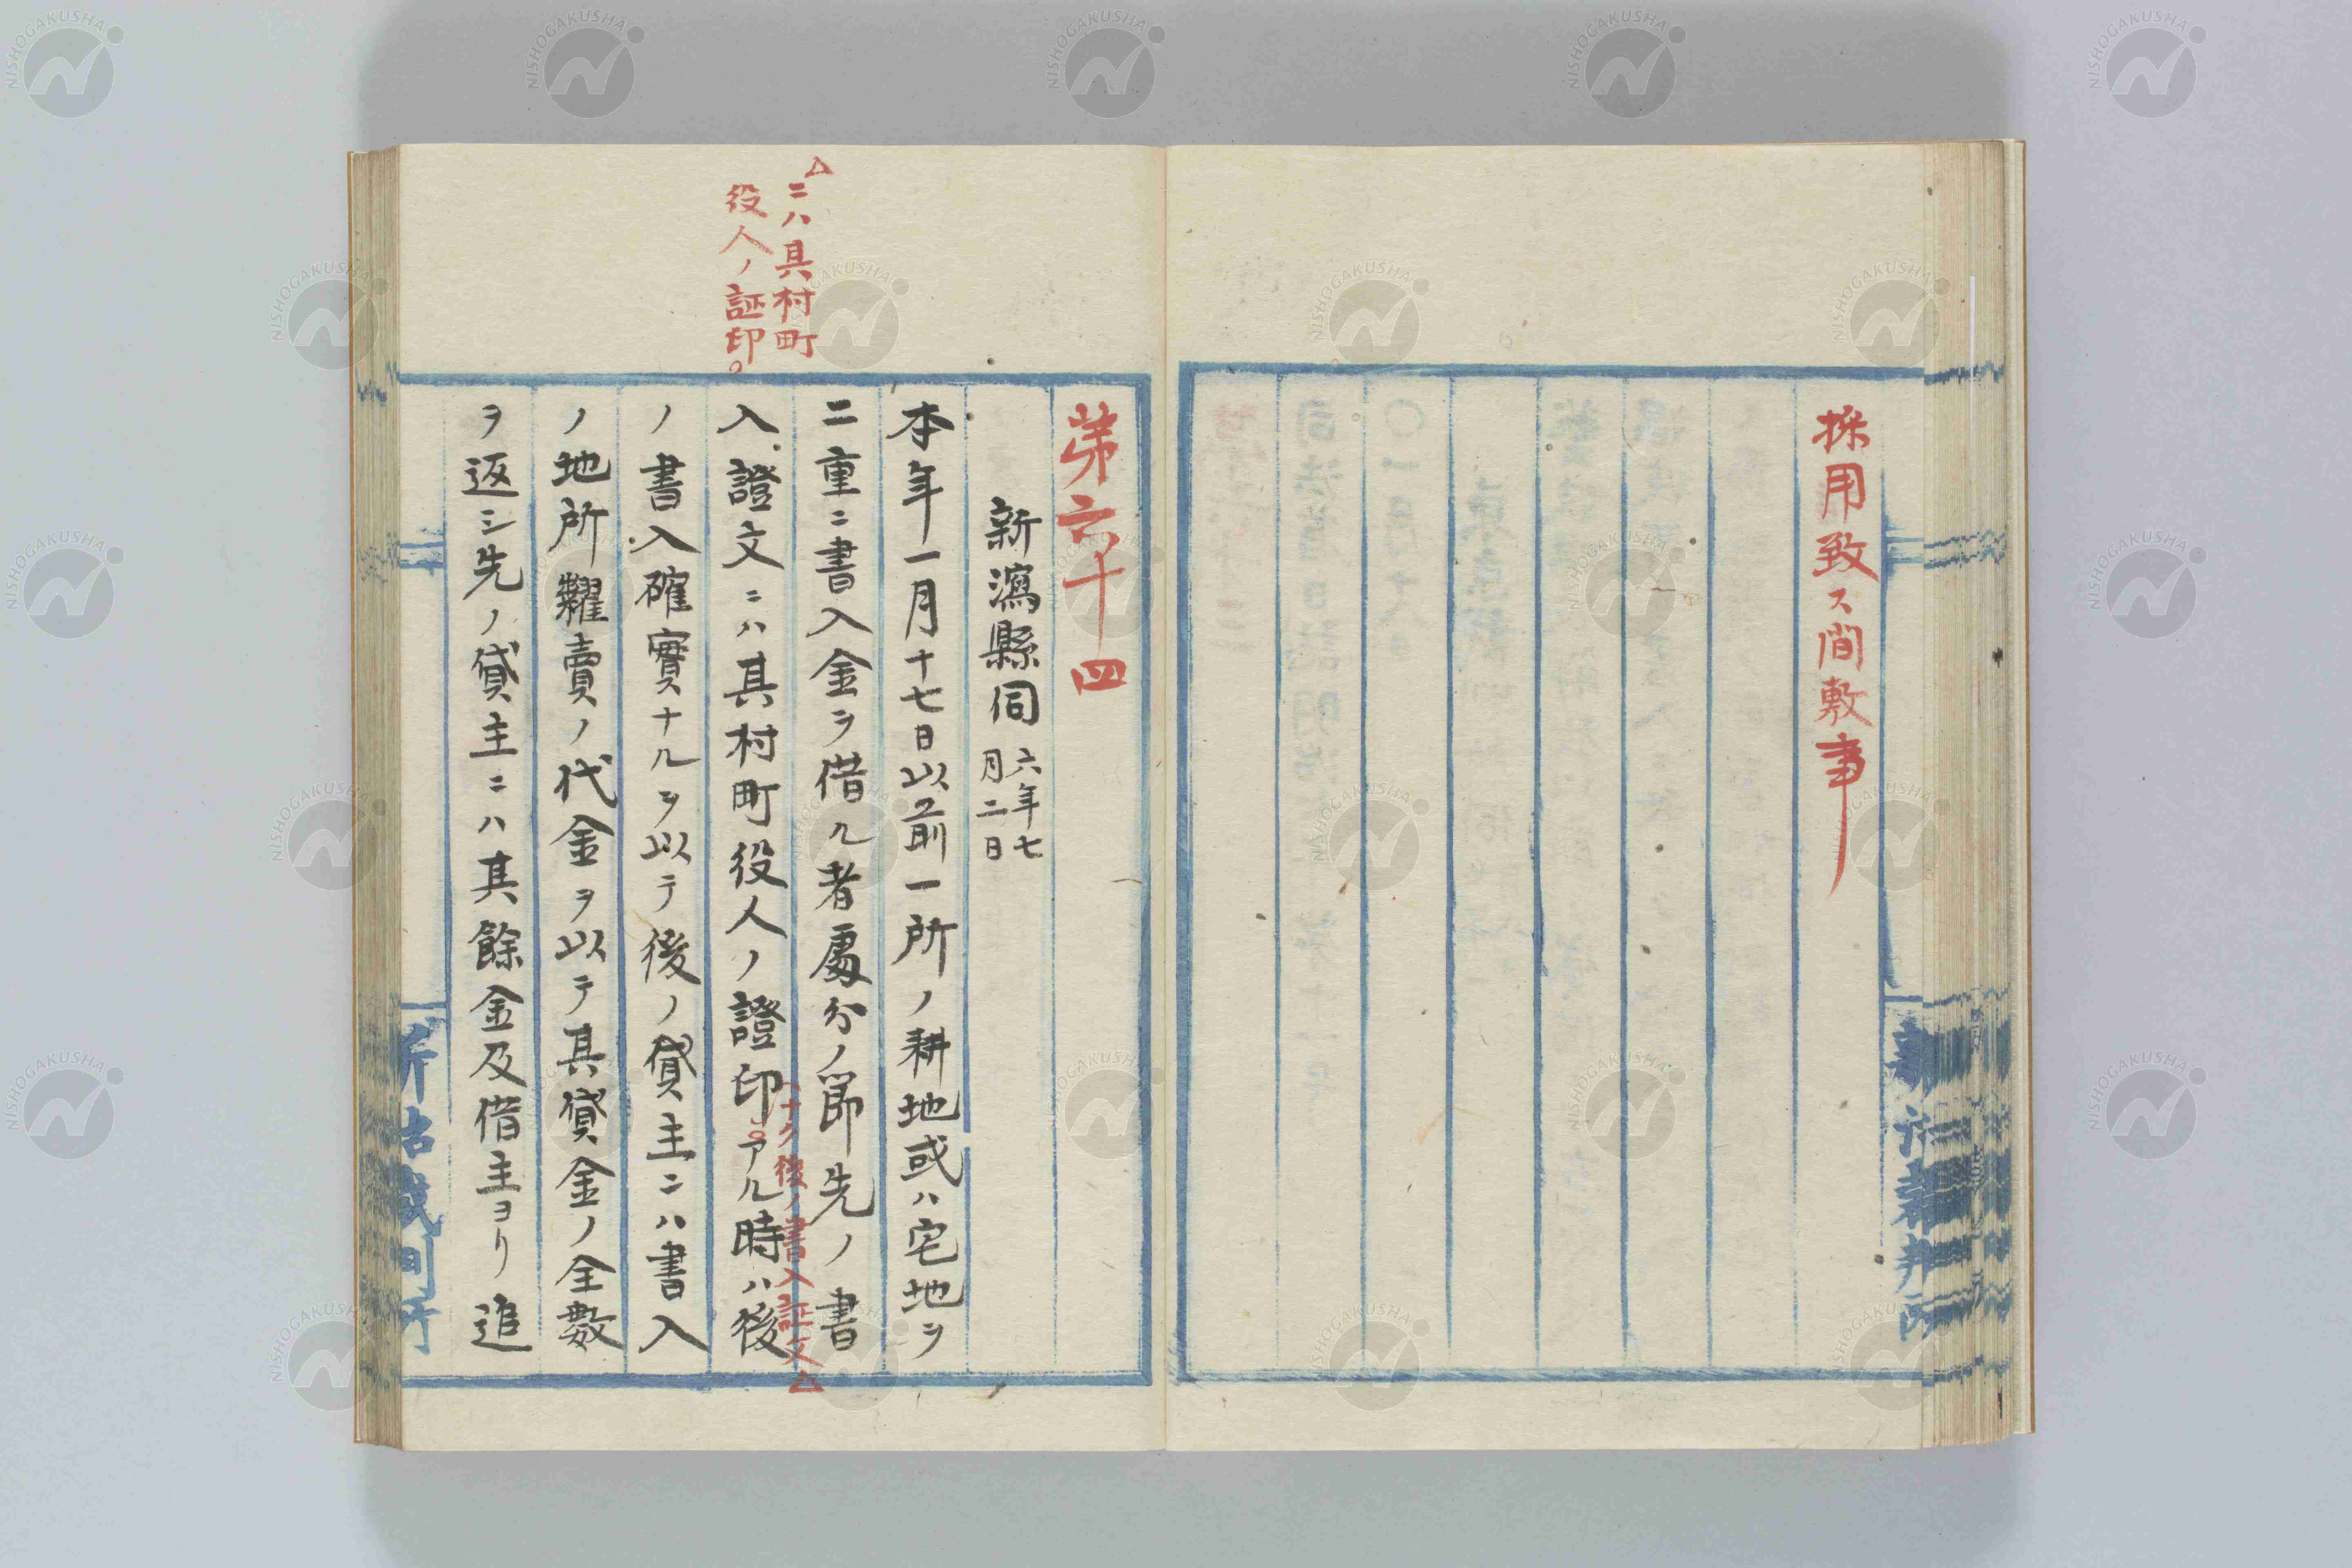 採用致ス間敷事
第六十四
新瀉縣伺 六年七月二日
本年一月十七日以前一所ノ耕地或ハ宅地ヲ
二重ニ書入金ヲ借ル者處分ノ節先ノ書
入證文ニハ其村町役人ノ證印アル時ハ後
ナク後ノ書入証文△
△ニハ其村町
役人ノ証印。
ノ書入確實ナルヲ以テ後ノ貸主ニハ書入
ノ地所糶賣ノ代金ヲ以テ其貸金ノ全數
ヲ返シ先ノ貸主ニハ其餘金及借主ヨリ追
NISHOGAKUSHA